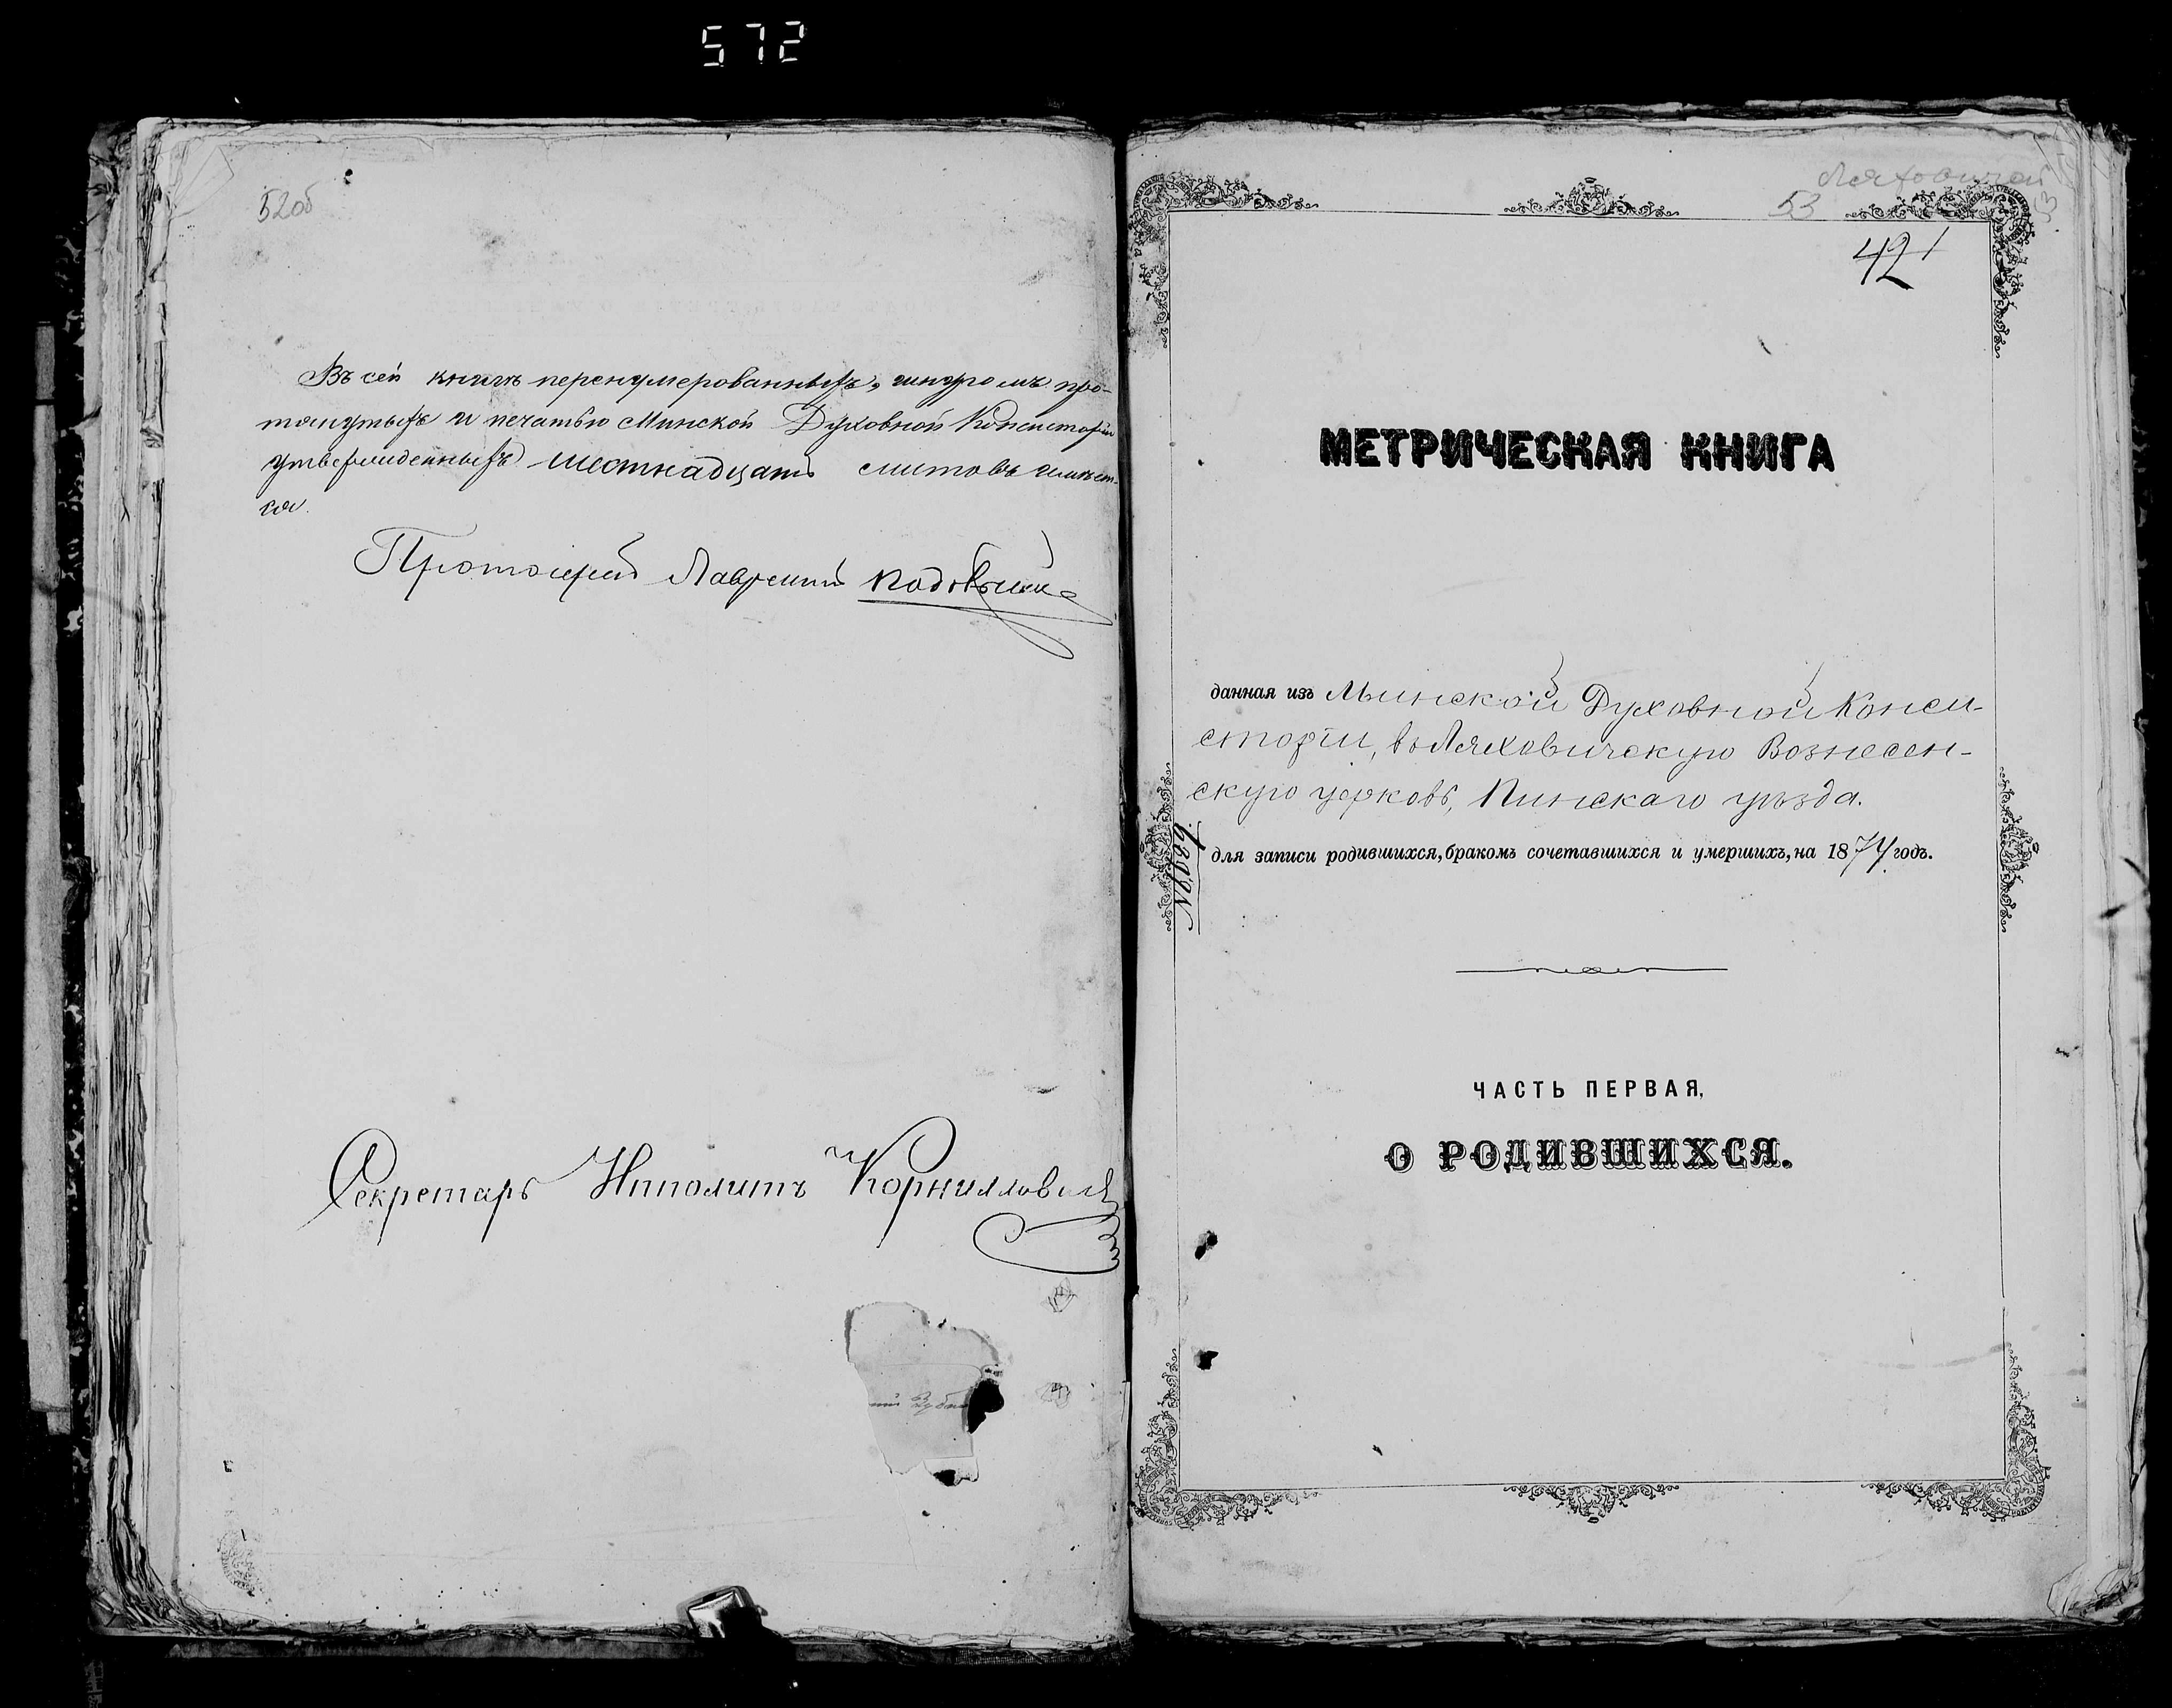 572
52об
Въ сей книгѣ перенумерованныхъ, шнуромъ про-
тянутыхъ и печатью Минской Духовной Консисторіи
утвержденныхъ шестнадцать листовъ имѣет-
ся.
Протоіерей Лаврентій
Секретарь Ипполитъ Корнилловичъ
53
42
МЕТРИЧЕСКАЯ КНИГА
данная изъ Минской Духовной Конси-
сторіи, въ Ляховичскую Вознесен-
скую церковь, Пинскаго уѣзда.
для записи родившихся, бракомъ сочетавшихся и умершихъ, на 1874 годъ.
ЧАСТЬ ПЕРВАЯ,
О РОДИВШИХСЯ.